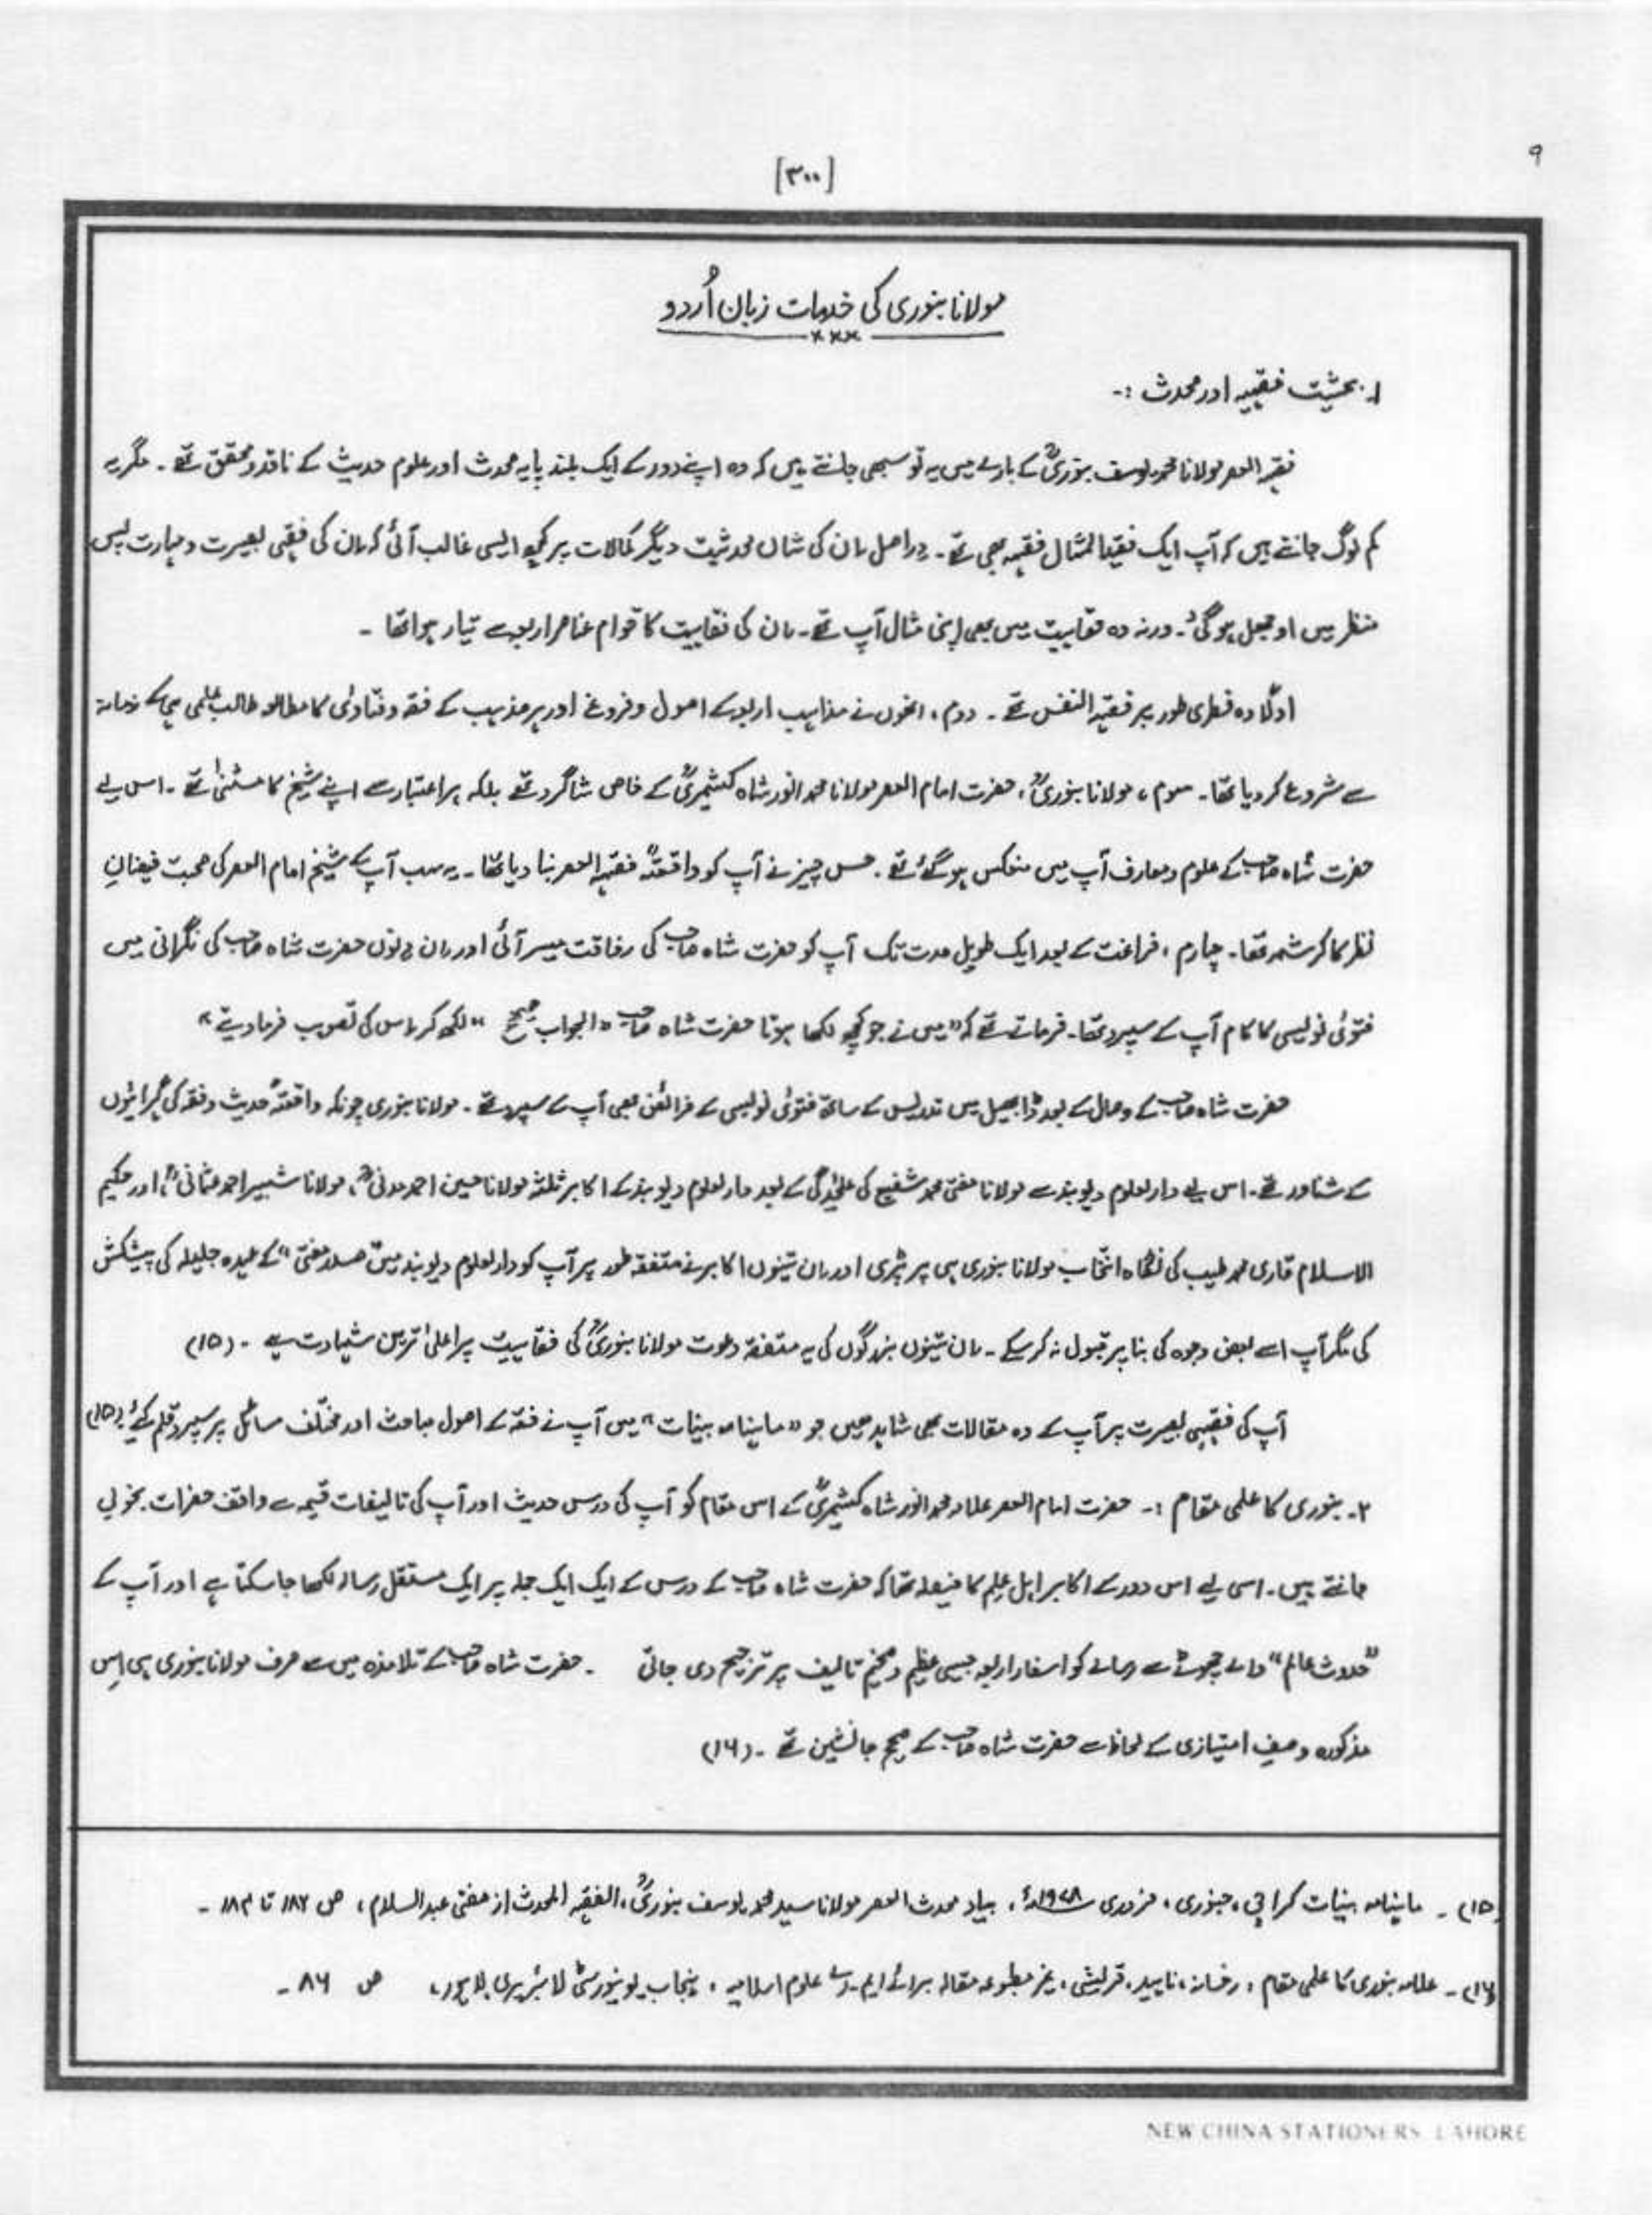 ۹
[۳۰۰]
مولانا بنوری کی خدمات زبان اُردو
×××
۱۔ بحثیت فقیہہ اور محدث :۔
فقیہ العصر مولانا محمد یوسف بنوریؒ کے بارے میں یہ تو سبھی جانتے ہیں کہ وہ اپنے دور کے ایک بلند پایہ محدث اور علوم حدیث کے ناقد و محقق تھے ۔ مگر یہ
کم لوگ جانتے ہیں کہ آپ ایک فقید المثال فقیہہ بھی تھے ۔ دراصل ان کی شان محدثیت دیگر کمالات پر کچھ ایسی غالب آئی کہ ان کی فقہی بصیرت و مہارت پس
منظر میں اوجھل ہو گئی ۔ ورنہ وہ فقاہیت میں بھی اپنی مثال آپ تھے ۔ ان کی فقاہیت کا قوام عناصر اربعہ سے تیار ہوا تھا ۔
اولًا وہ فطری طور پر فقیہ النفس تھے ۔ دوم ، انھوں نے مذاہب اربعہ کے اصول و فروغ اور ہر مذہب کے فقہ و فتاوٰی کا مطالعہ طالب علمی ہی کے زمانہ
سے شروع کر دیا تھا ۔ سوم ، مولانا بنوریؒ ، حضرت امام العصر مولانا محمد انور شاہ کشمیریؒ کے خاص شاگرد تھے بلکہ ہر اعتبار سے اپنے شیخ کا مثنٰی تھے ۔ اس لیے
حضرت شاہ صاحب کے علوم و معارف آپ میں منعکس ہو گئے تھے ۔ جس چیز نے آپ کو واقعتہً فقیہ العصر بنا دیا تھا ۔ یہ سب آپ کے شیخ امام العصر کی صحبت فیضانِ
نظر کا کرشمہ تھا ۔ چہارم ، فراغت کے بعد ایک طویل مدت تک آپ کو حضرت شاہ صاحب کی رفاقت میسر آئی اور ان دنوں حضرت شاہ صاحب کی نگرانی میں
فتوٰی نویسی کا کام آپ کے سپرد تھا ۔ فرماتے تھے کہ "میں نے جو کچھ لکھا ہوتا حضرت شاہ صاحب "الجواب صحیح" لکھ کر اس کی تصویب فرما دیتے"
حضرت شاہ صاحب کے وصال کے بعد ڈابھیل میں تدریس کے ساتھ فتوٰی نویسی کے فرائض بھی آپ کے سپرد تھے ۔ مولانا بنوری چونکہ واقعتہً حدیث و فقہ کی گہرائیوں
کے شناور تھے ۔ اس لیے دارالعلوم دیوبند سے مولانا مفتی محمد شفیع کی علیٰحدگی کے بعد دارالعلوم دیوبند کے اکابر ثلثہ مولانا حسین احمد مدنیؒ ، مولانا شبیر احمد عثمانیؒ ، اور حکیم
الاسلام قاری محمد طیب کی نگاہ انتخاب مولانا بنوری ہی پر پڑی اور ان تینوں اکابر نے متفقہ طور پر آپ کو دارالعلوم دیوبند میں "صدر مفتی" کے عہدہ جلیلہ کی پیشکش
کی مگر آپ اسے بعض وجوہ کی بنا پر قبول نہ کر سکے ۔ ان تینوں بزرگوں کی یہ متفقہ دعوت مولانا بنوریؒ کی فقاہیت پر اعلیٰ ترین شہادت ہے ۔ (۱۵)
آپ کی فقہی بصیرت پر آپ کے وہ مقالات بھی شاہد ہیں جو "ماہنامہ بینات" میں آپ نے فقہ کے اصول مباحث اور مختلف مسائل پر سپرد قلم کیے ۔ (۱۵)
۲۔ بنوری کا علمی مقام :۔ حضرت امام العصر علامہ محمد انور شاہ کشمیریؒ کے اس مقام کو آپ کی درس حدیث اور آپ کی تالیفات قیمہ سے واقف حضرات بخوبی
جانتے ہیں ۔ اسی لیے اس دور کے اکابر اہل علم کا فیصلہ تھا کہ حضرت شاہ صاحب کے درس کے ایک ایک جملہ پر ایک مستقل رسالہ لکھا جا سکتا ہے اور آپ کے
"حدوث عالم" والے چھوٹے سے رسالے کو اسفار اربعہ جیسی عظیم و ضخیم تالیف پر ترجیح دی جاتی ۔ حضرت شاہ صاحب کے تلامذہ میں سے صرف مولانا بنوری ہی اِس
مذکورہ وصفِ امتیازی کے لحاظ سے حضرت شاہ صاحب کے صحیح جانشین تھے ۔ (۱۶)
(۱۵) ۔ ماہنامہ بینات کراچی ، جنوری ، فروری ۱۹۷۸ء ، بیاد محدث العصر مولانا سید محمد یوسف بنوریؒ ، الفقیہ المحدث از مفتی عبدالسلام ، ص ۱۸۲ تا ۱۸۳ ۔
(۱۶) ۔ علامہ بنوری کا علمی مقام ، رخسانہ ناہید ، قریشی ، غیر مطبوعہ مقالہ برائے ایم ۔ اے علوم اسلامیہ ، پنجاب یونیورسٹی لائبریری لاہور ، ص ۸۶ ۔
NEW CHINA STATIONERS LAHORE